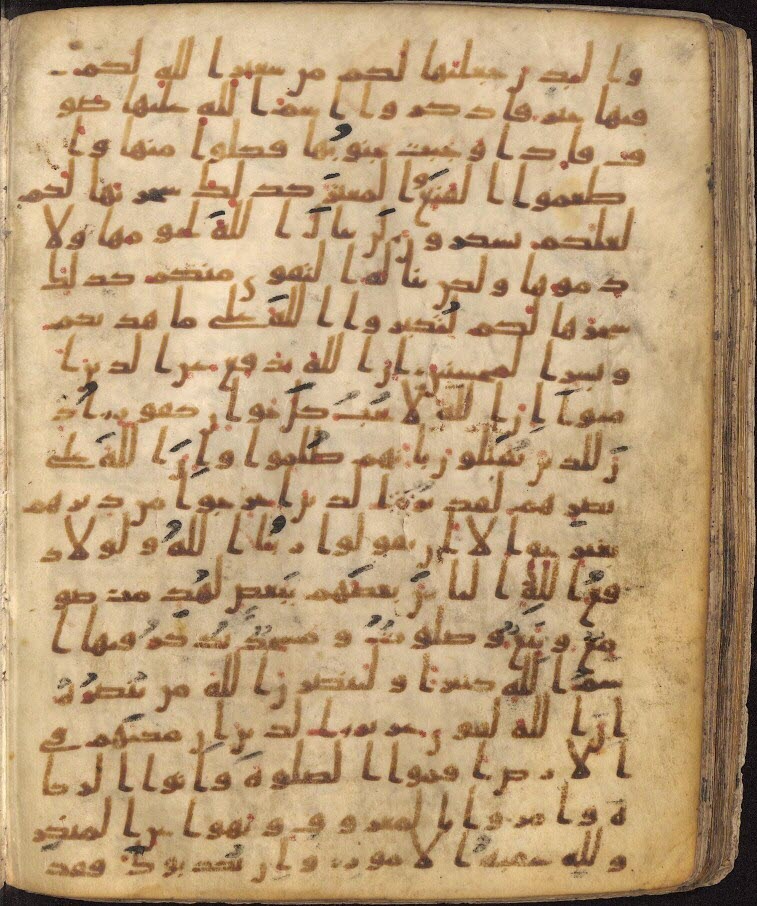 والبدن جعلنها لكم من شعير الله لكم
فيها خير فاذكروا اسم الله عليها صو
ف فاذا وجبت جنوبها فكلوا منها وا
طعموا القنع والمعتر كذلك سخرنها لكم
لعلكم تشكرون لن ينال الله لحومها ولا
دموها ولكن يناله التقوى منكم كذلك
سخرها لكم لتكبروا الله على ما هديكم
وبشر المحسنين ان الله يدفع عن الذين ا
منوا ان الله لا يحب كل خوان كفور اذ
ن للذين يقتلون بانهم ظلموا وان الله على
نصرهم لقدير الذين اخرجوا من ديرهم
بغير حق الا ان يقولوا ربنا الله ولولا د
فع الله الناس بعضهم ببعض لهدمت صو
مع وبيع وصلوت ومسجد يذكر فيها ا
سم الله كثيرا ولينصرن الله من ينصره
ان الله لقوي عزيز الذين ان مكنهم في
الارض اقموا الصلوة واتوا الزكو
ة وامروا بالمعروف ونهوا عن المنكر
ولله عقبة الامور وان يكذبوك فقد